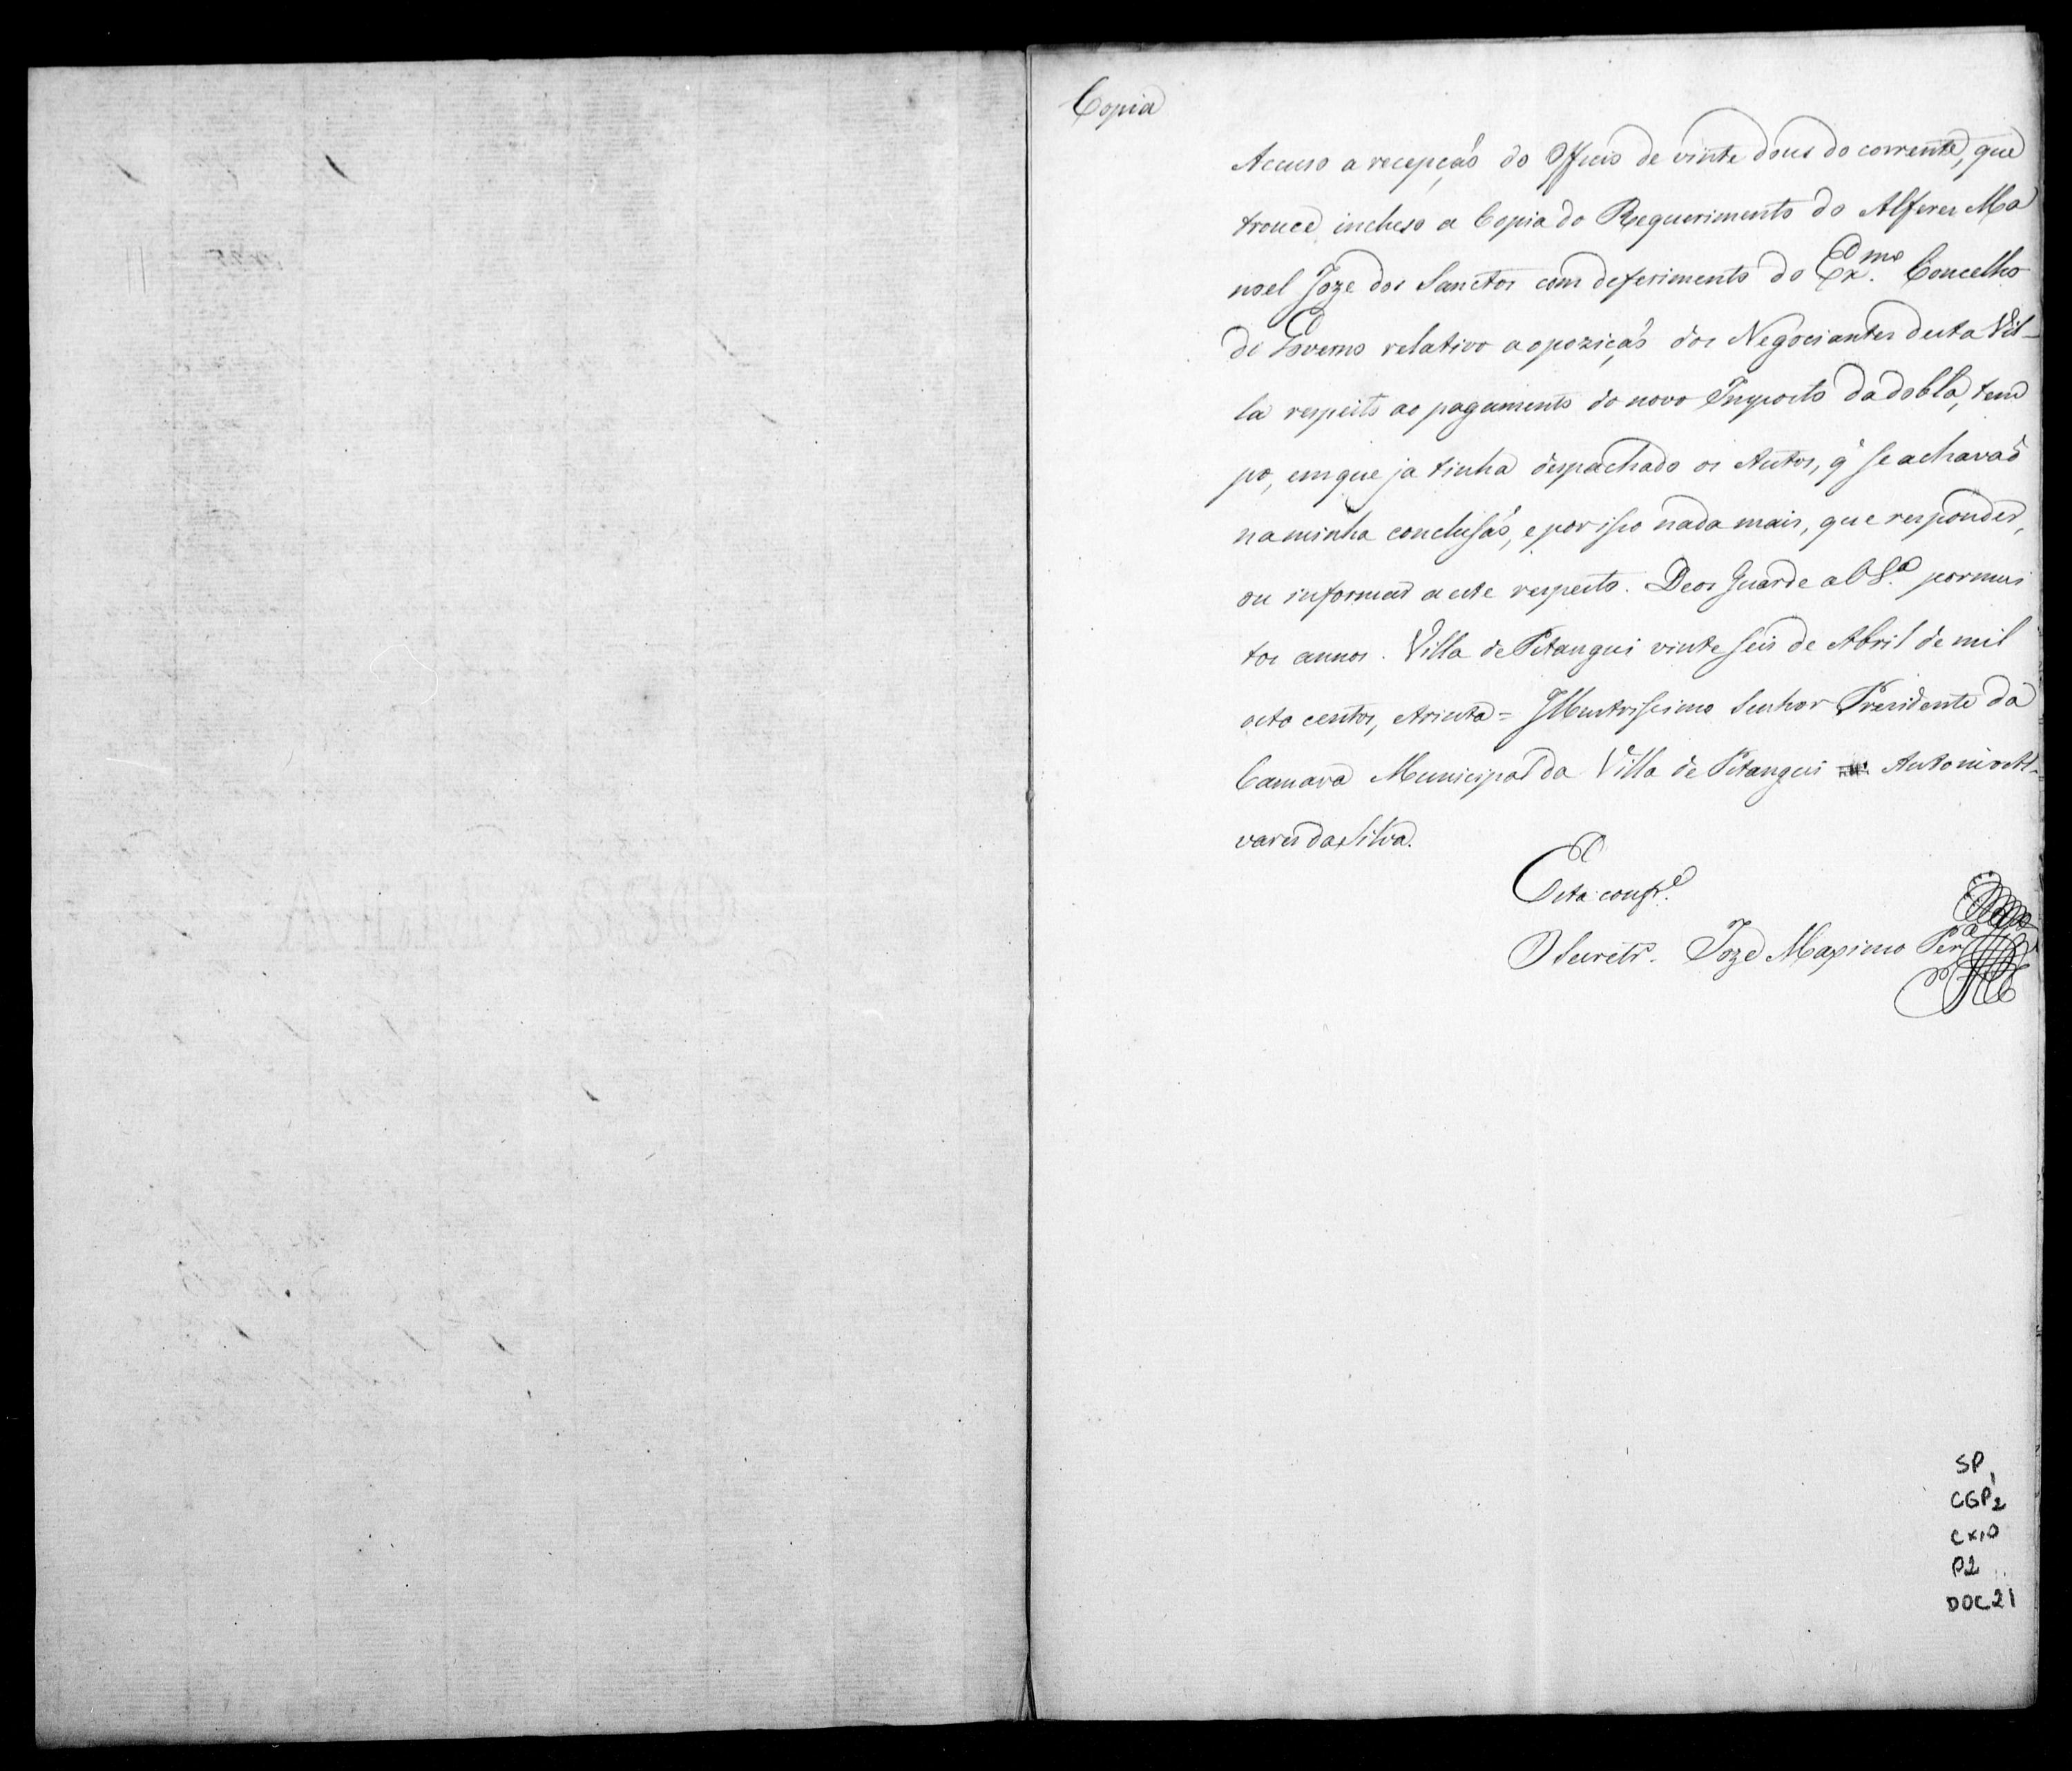 Copia
Accuso a recepçaõ do Officio de vinte dous do corrente, que
trouce incluso a Copia do Requerimento do Alferes Ma
noel Joze dos Sanctos com deferimento do Ex.mo Concelho
do Governo relativo a opoziçaõ dos Negociantes desta Vil-
la respeito ao pagamento do novo Imposto da dobla, tem
po, em que ja tinha despachado os Autos, q̃ se achavaõ
na minha conclusaõ, e por isso nada mais, que responder,
ou informar a este respeito. Deos Guarde a V S.a por mui
tos annos. Villa de Pitangui vinte seis de Abril de mil
oito centos, e trinta = Illustrissimo Senhor Prezidente da
Camara Municipal da Villa de Pitangui Antonio Al-
vares da Silva.
Esta confr.e
O Secretr.o Joze Maximo Per.a
SP1
CGP2
CX10
P2
DOC21